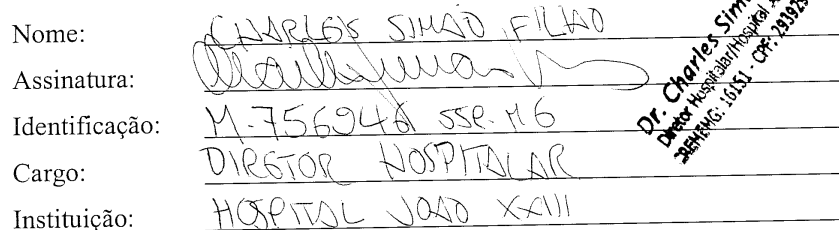 Nome: CHARLES SIMÃO FILHO
Assinatura:
Identificação: M-756946 SSP-MG
Cargo: DIRETOR HOSPITALAR
Instituição: HOSPITAL JOÃO XXIII
Dr. Charles Sim
Diretor Hospitalar/Hospital
CREMEMG: 16151 - CPF: 293929